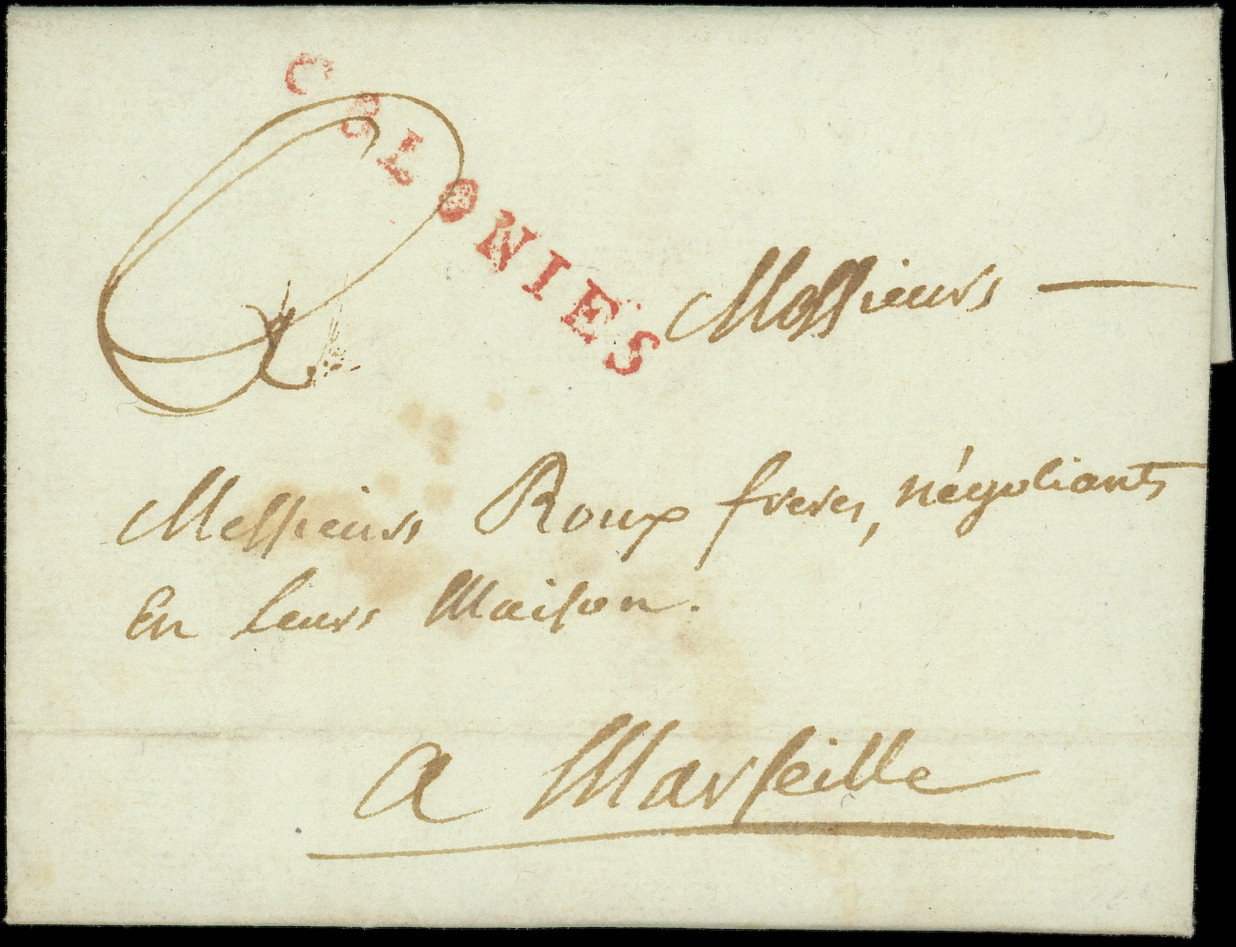 COLONIES
Messieurs
Messieurs Roux freres, négotiants
En leurs Maison.
a Marseille